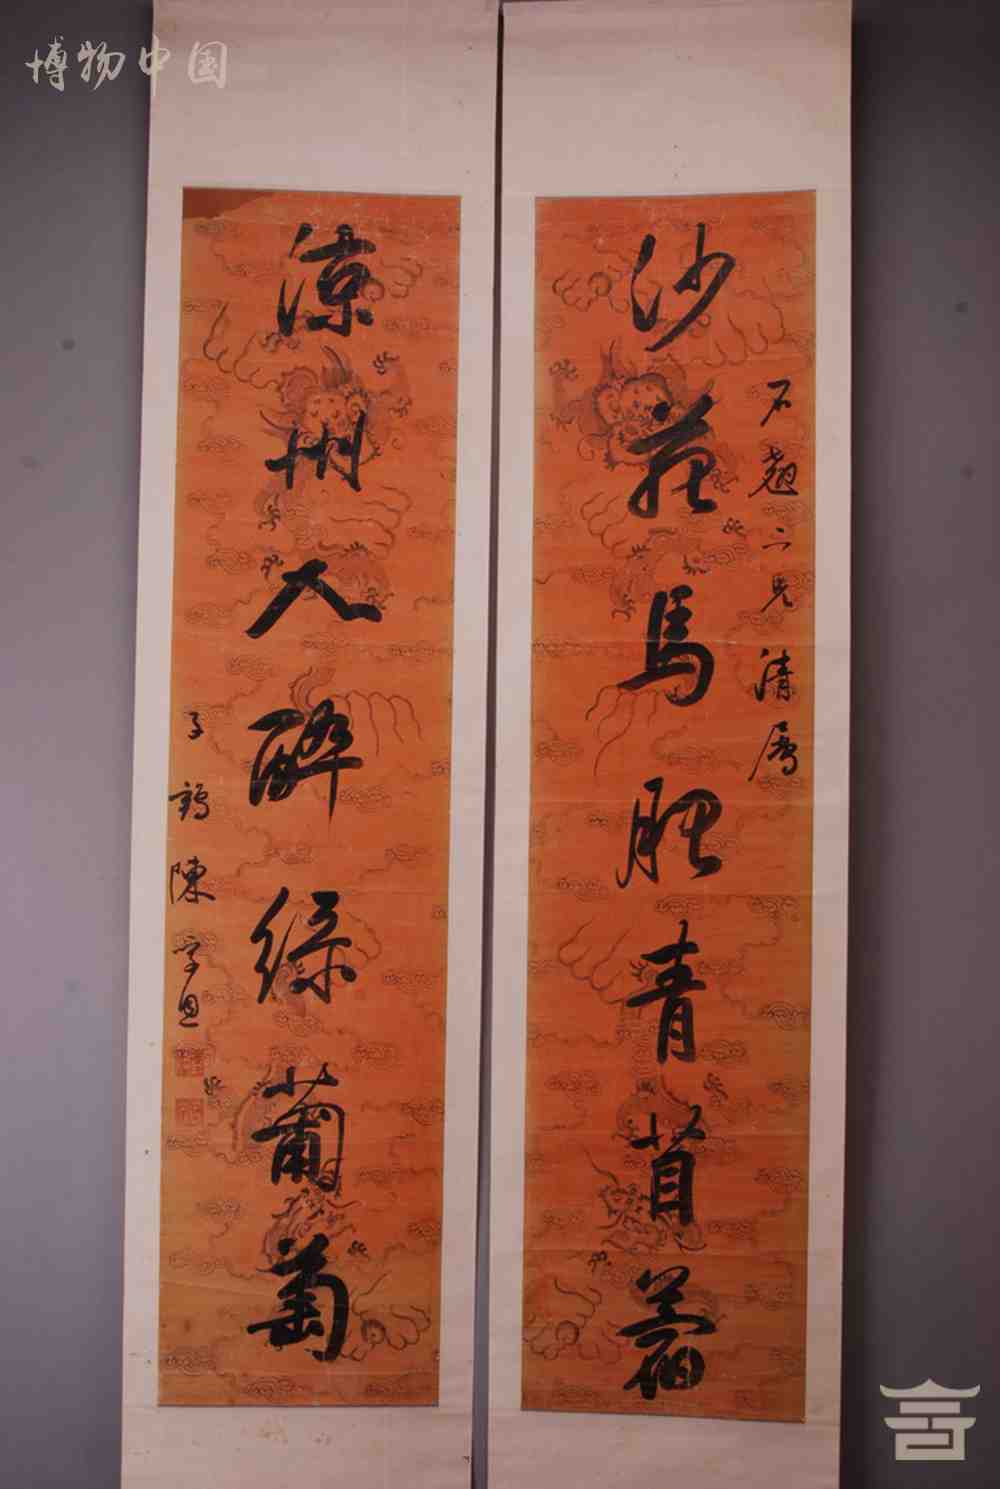 博物中国
石翘二兄清属
沙苑马肥青苜蓿
凉州人醉绿葡萄
子鹤陈孚恩